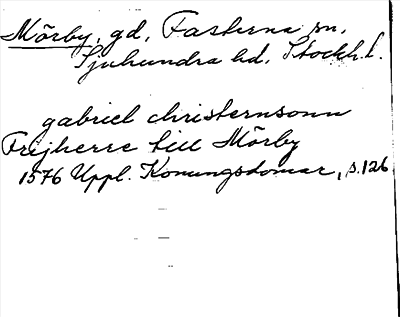 Mörby, gd, Fasterna sn,
Sjuhundra hd. Stockh. l.
gabriel christernsonn
Frijherre till Mörby
1576 Uppl. Konungsdomar, s. 126